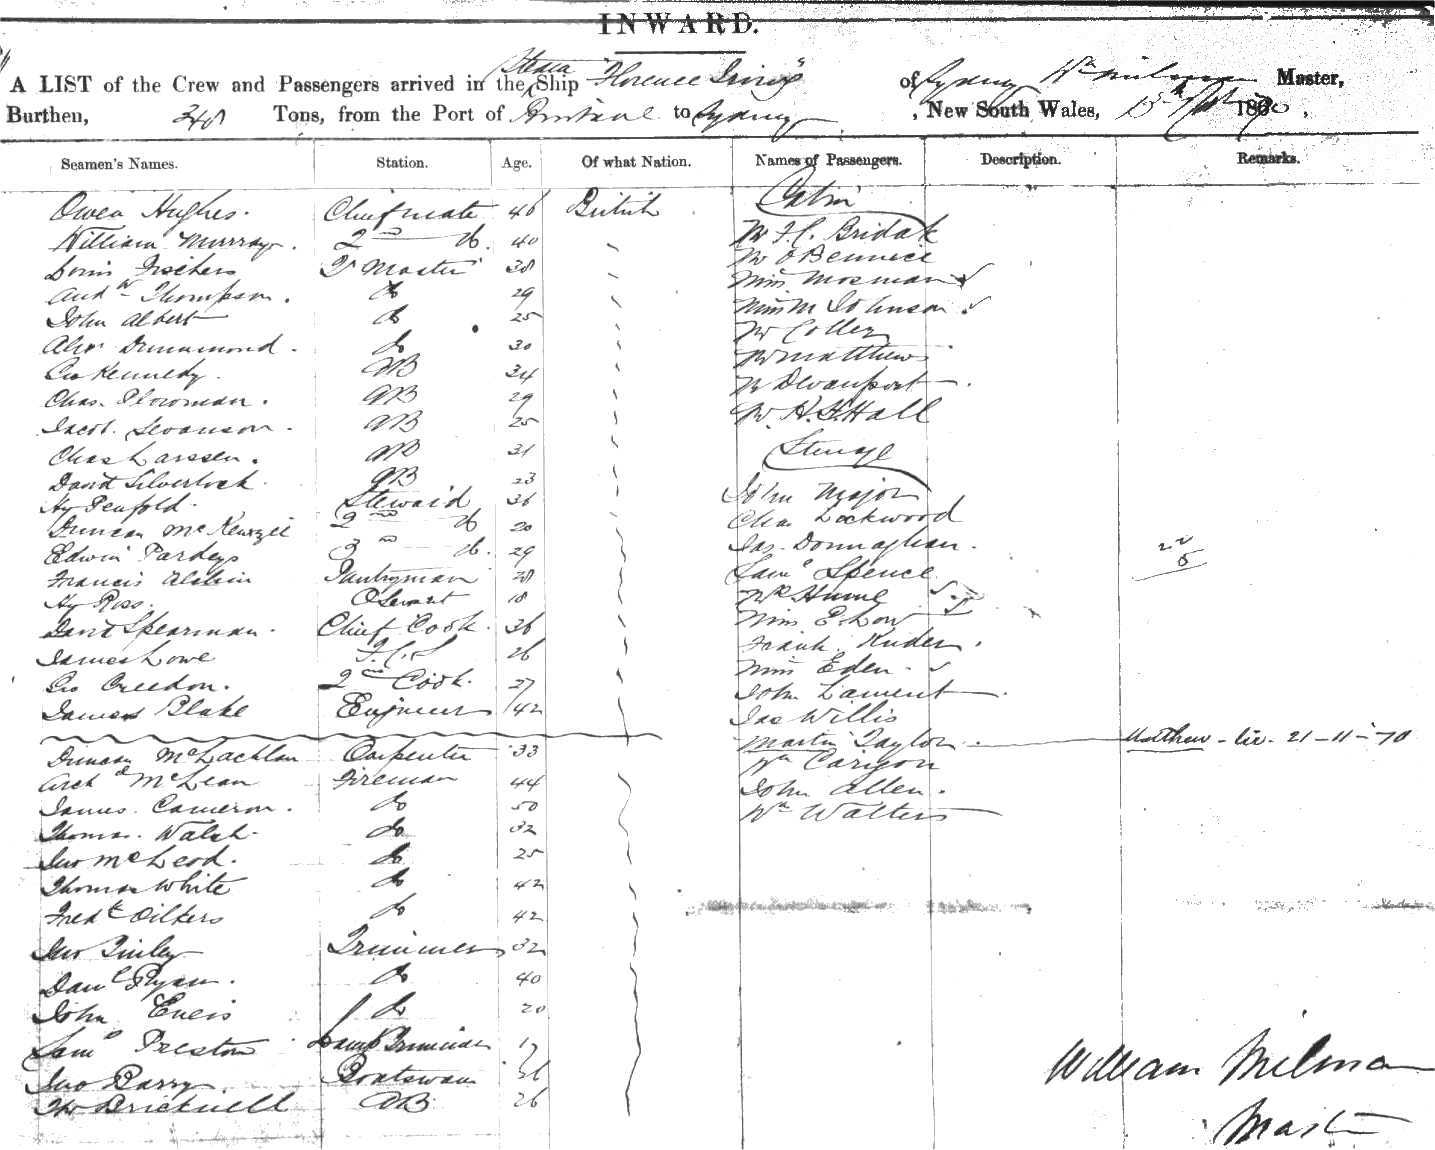 INWARD.
A LIST of the Crew and Passengers arrived in the Steam Ship Florence Irving of Sydney Wm Milman Master,
Burthen, 348 Tons, from the Port of Brisbane to Sydney, New South Wales, 1870,
Seamen's Names. Station. Age. Of what Nation. Names of Passengers. Description. Remarks.
Owen Hughes. Chief mate 46 British Cabin
William Murray. 2nd do. 40 Mr F. C. Bridak
Fischers Qr Master 38 Mr
Andw Thompson. do 29 Miss Mosman
John Albert do 25 Miss M Johnson
Alexr Drummond. do 30 Mr
Geo Kennedy. AB 34 Mr Matthews
Chas. Plowman. AB 29 Mr Devanport
Jacob. Swanson. AB 25 Mr. H. F. Hall
Chas Larssen. AB 31 Steerage
David Silverlock. AB 23
Hy Penfold. Steward 36 John Major
Duncan McKenzie 2nd do 20 Chas Lockwood
Edwin Pardeys 3rd do. 29 Jas. Donnaghan.
Francis Pantryman 28 Saml Spence
Hy Ross. 18 Mr Hume
David Spearman. Chief Cook. 36 Miss E. Low
James Lowe 26 Frank.
Geo Creedon. 2nd Cook. 27 Miss Eden
James Blake Engineer 42 John Lament
Jas Willis
Duncan McLachlan Carpenter 33 Martin Taylor Matthew - 21-11-70
Archd McLean Fireman 44 Wm
James. Cameron. do 50 John Allen.
Thomas. Walsh. do 32 Wm Walters
Jno McLeod. do 25
Thomas White do 42
Fredk Oilkers do 42
Jno Finley Trimmer 32
Danl Ryan. do 40
John do 20
Saml Preston Lamp Trimmer 17
Jno Barry. Boatswain 36
Bricknell AB 26
William Milman
Master